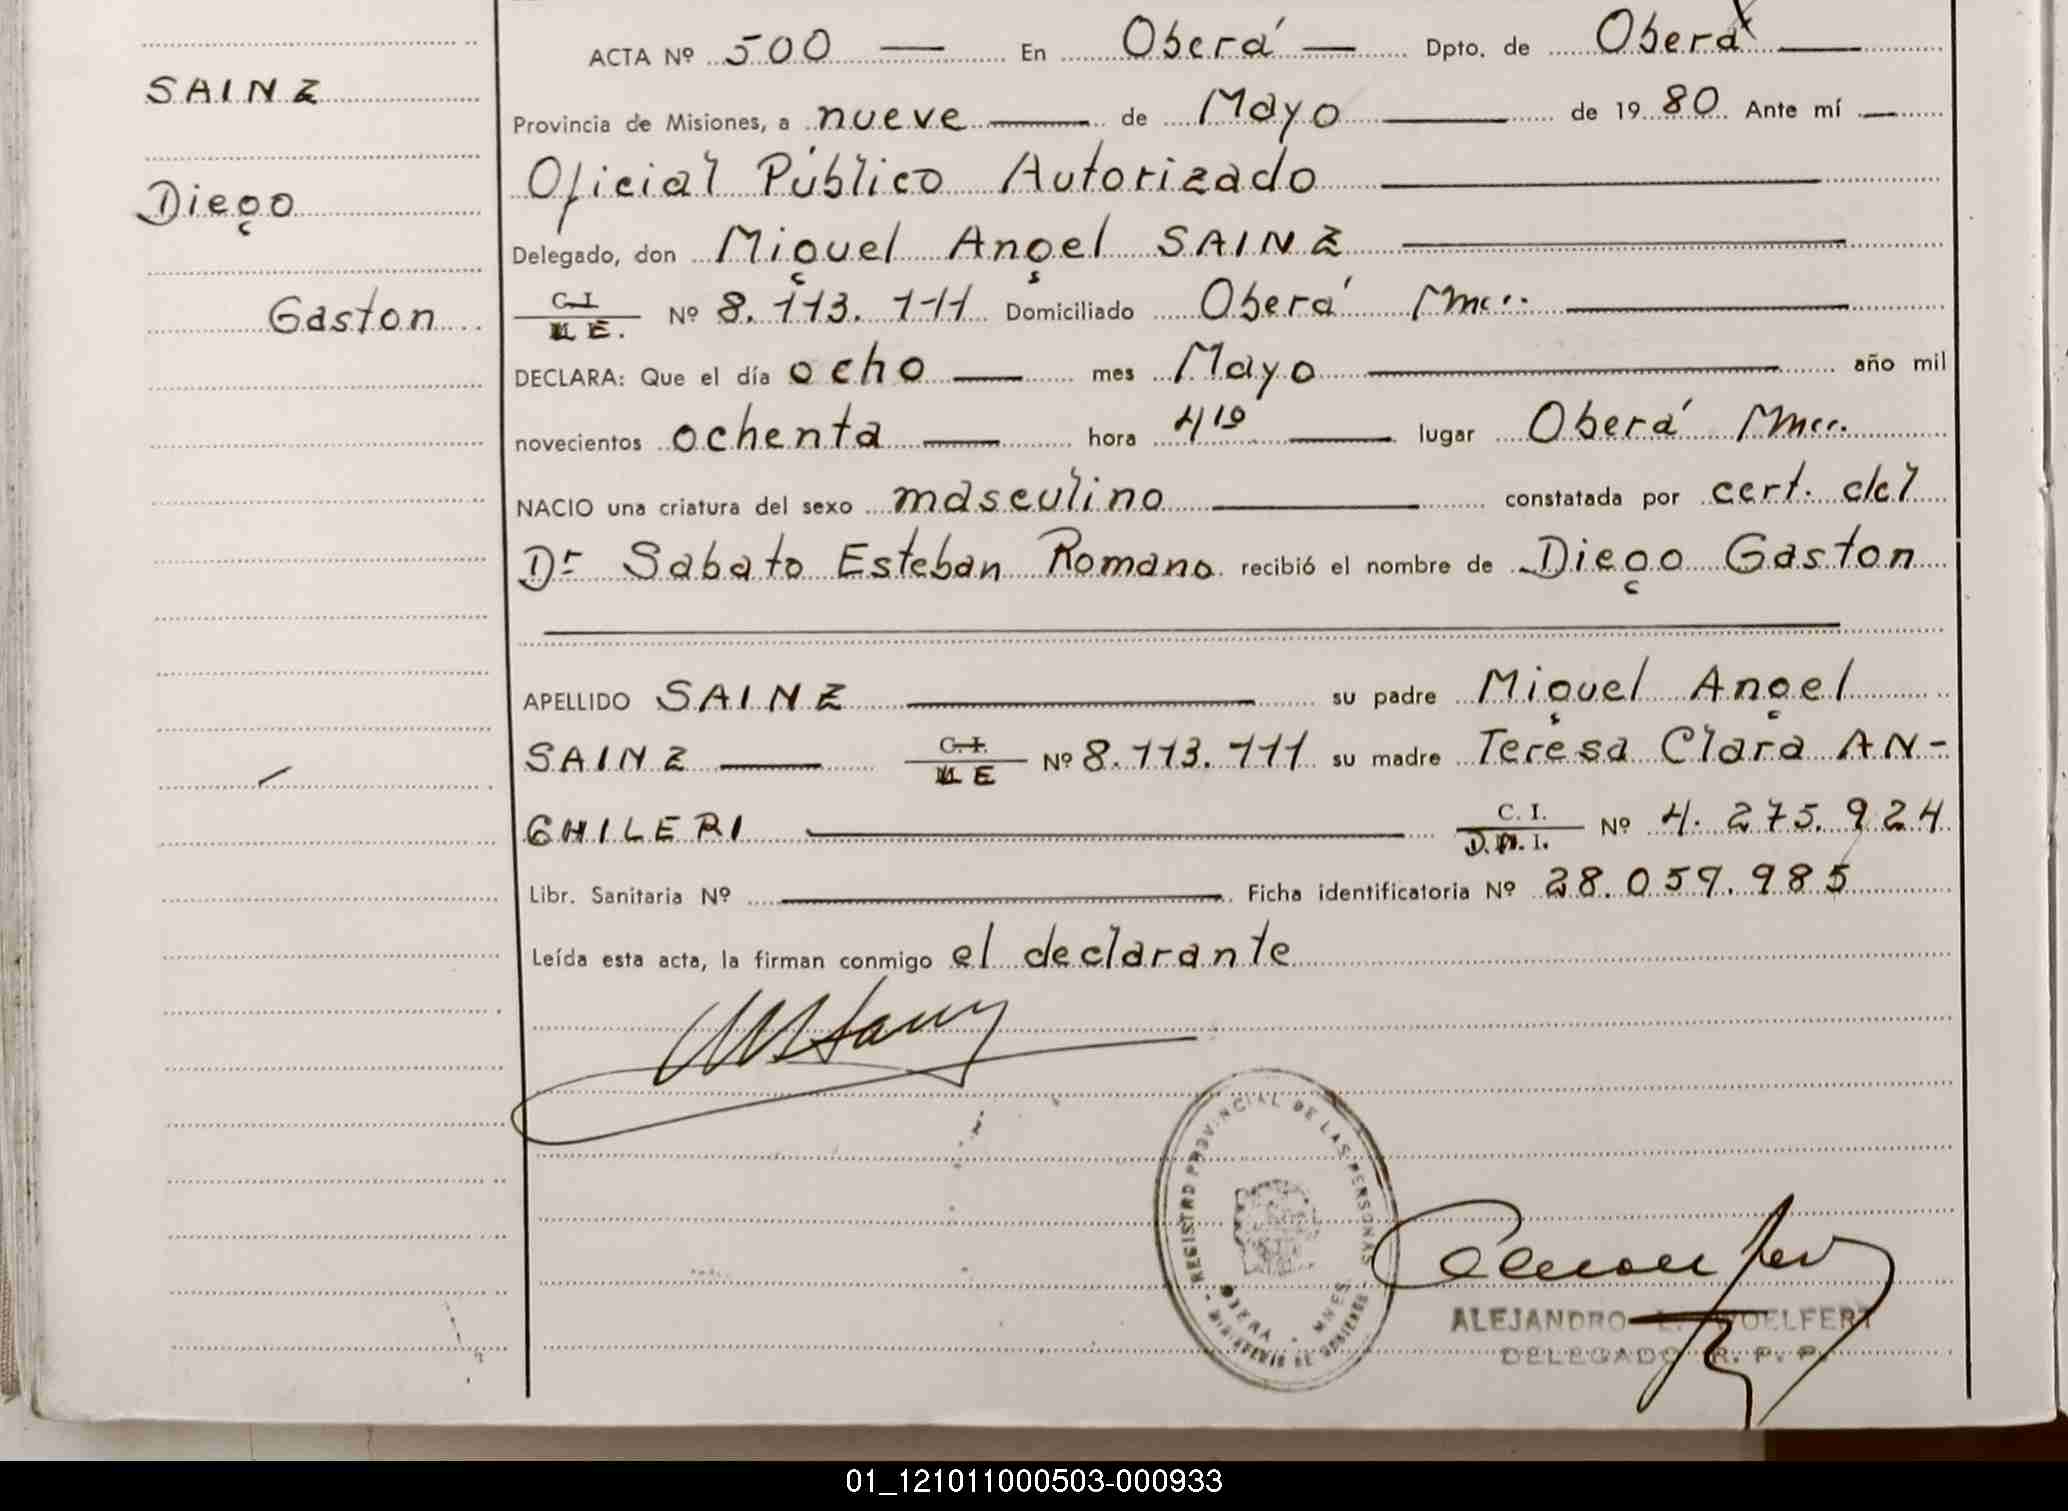 ACTA Nº 500 — En Oberá — Dpto. de Oberá —
SAINZ
Provincia de Misiones, a nueve — de Mayo — de 1980 Ante mí —
Oficial Público Autorizado —
Diego
Delegado, don Miguel Angel SAINZ —
Gaston
C.I. / M.E. Nº 8.113.111 Domiciliado Oberá Mnes. —
DECLARA: Que el día ocho — mes Mayo — año mil
novecientos ochenta — hora 4¹⁰ — lugar Oberá Mnes.
NACIO una criatura del sexo masculino — constatada por cert. del
Dr Sabato Esteban Romano recibió el nombre de Diego Gaston
APELLIDO SAINZ — su padre Miguel Angel
SAINZ — C.I. / M E Nº 8.113.111 su madre Teresa Clara AN-
GHILERI — C. I. / D.N.I. Nº 4.275.924
Libr. Sanitaria Nº — Ficha identificatoria Nº 28.059.985
Leída esta acta, la firman conmigo el declarante
REGISTRO PROVINCIAL DE LAS PERSONAS
OBERA - MNES
MINISTERIO DE GOBIERNO
ALEJANDRO L. WOELFERT
DELEGADO R. P. P.
01_121011000503-000933